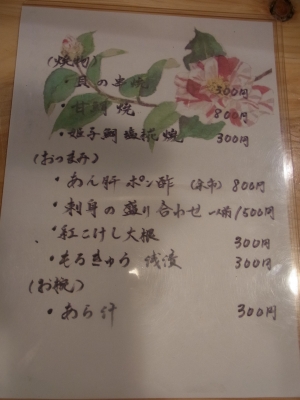 (焼物)
・貝の串焼 300円
・甘鯛焼 800円
・姫子鯛塩糀焼 300円
(おつまみ)
・あん肝ポン酢 800円
・刺身の盛り合わせ 一人前/1500円
・紅こけし大根 300円
・もろきゅう 浅漬 300円
(お椀)
・あら汁 300円